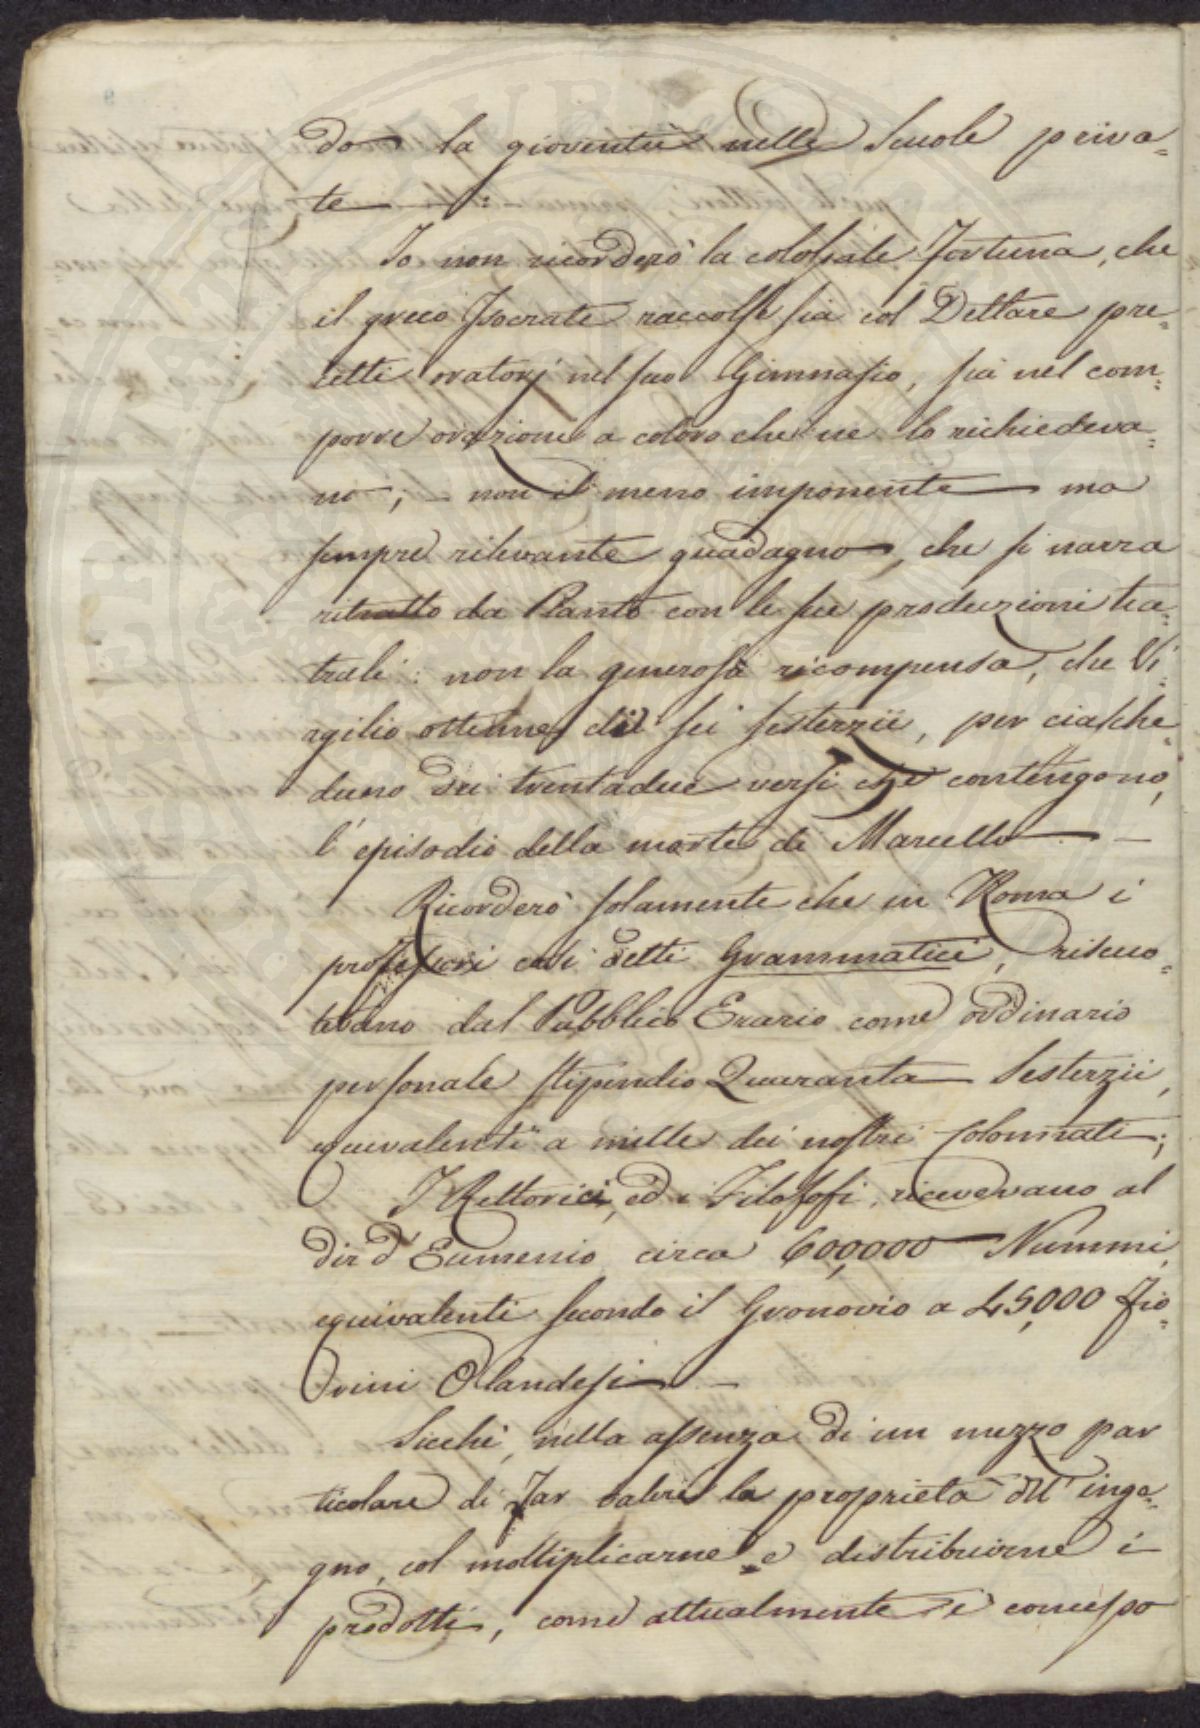 do la gioventù nelle Scuole priva=
te :
Io non ricorderò la colossale Fortuna, che
il greco Isocrate raccolse sia col Dettare pre=
cetti oratorj nel suo Gimnasio, sia nel com=
porre orazioni a coloro che ne lo richiedeva=
no; – non il meno imponente ma
sempre rilevante guadagno, che si narra
ritratto da Plauto con le sue produzioni tea=
trali: non la generosa ricompensa, che Vi=
rgilio ottenne di sei sesterzii, per ciasche=
duno dei trentadue versi che contengono,
l'episodio della morte di Marcello –
Ricorderò solamente che in Roma i
professori così detti Grammatici, riscuo=
tevano dal Pubblico Erario come ordinario
personale stipendio Quaranta Sesterzii,
equivalenti a mille dei nostri Colonnati;
I Rettorici, ed i Filosofi, ricevevano al
dir d'Eumenio circa 600,000 Nummi,
equivalenti secondo il Gronovio a 45,000 Fio=
rini Olandesi –
Sicchè, nella assenza di un mezzo par
ticolare di Far valere la proprietà dell'inge=
gno, col moltiplicarne e distribuirne i
prodotti, come attualmente è concesso